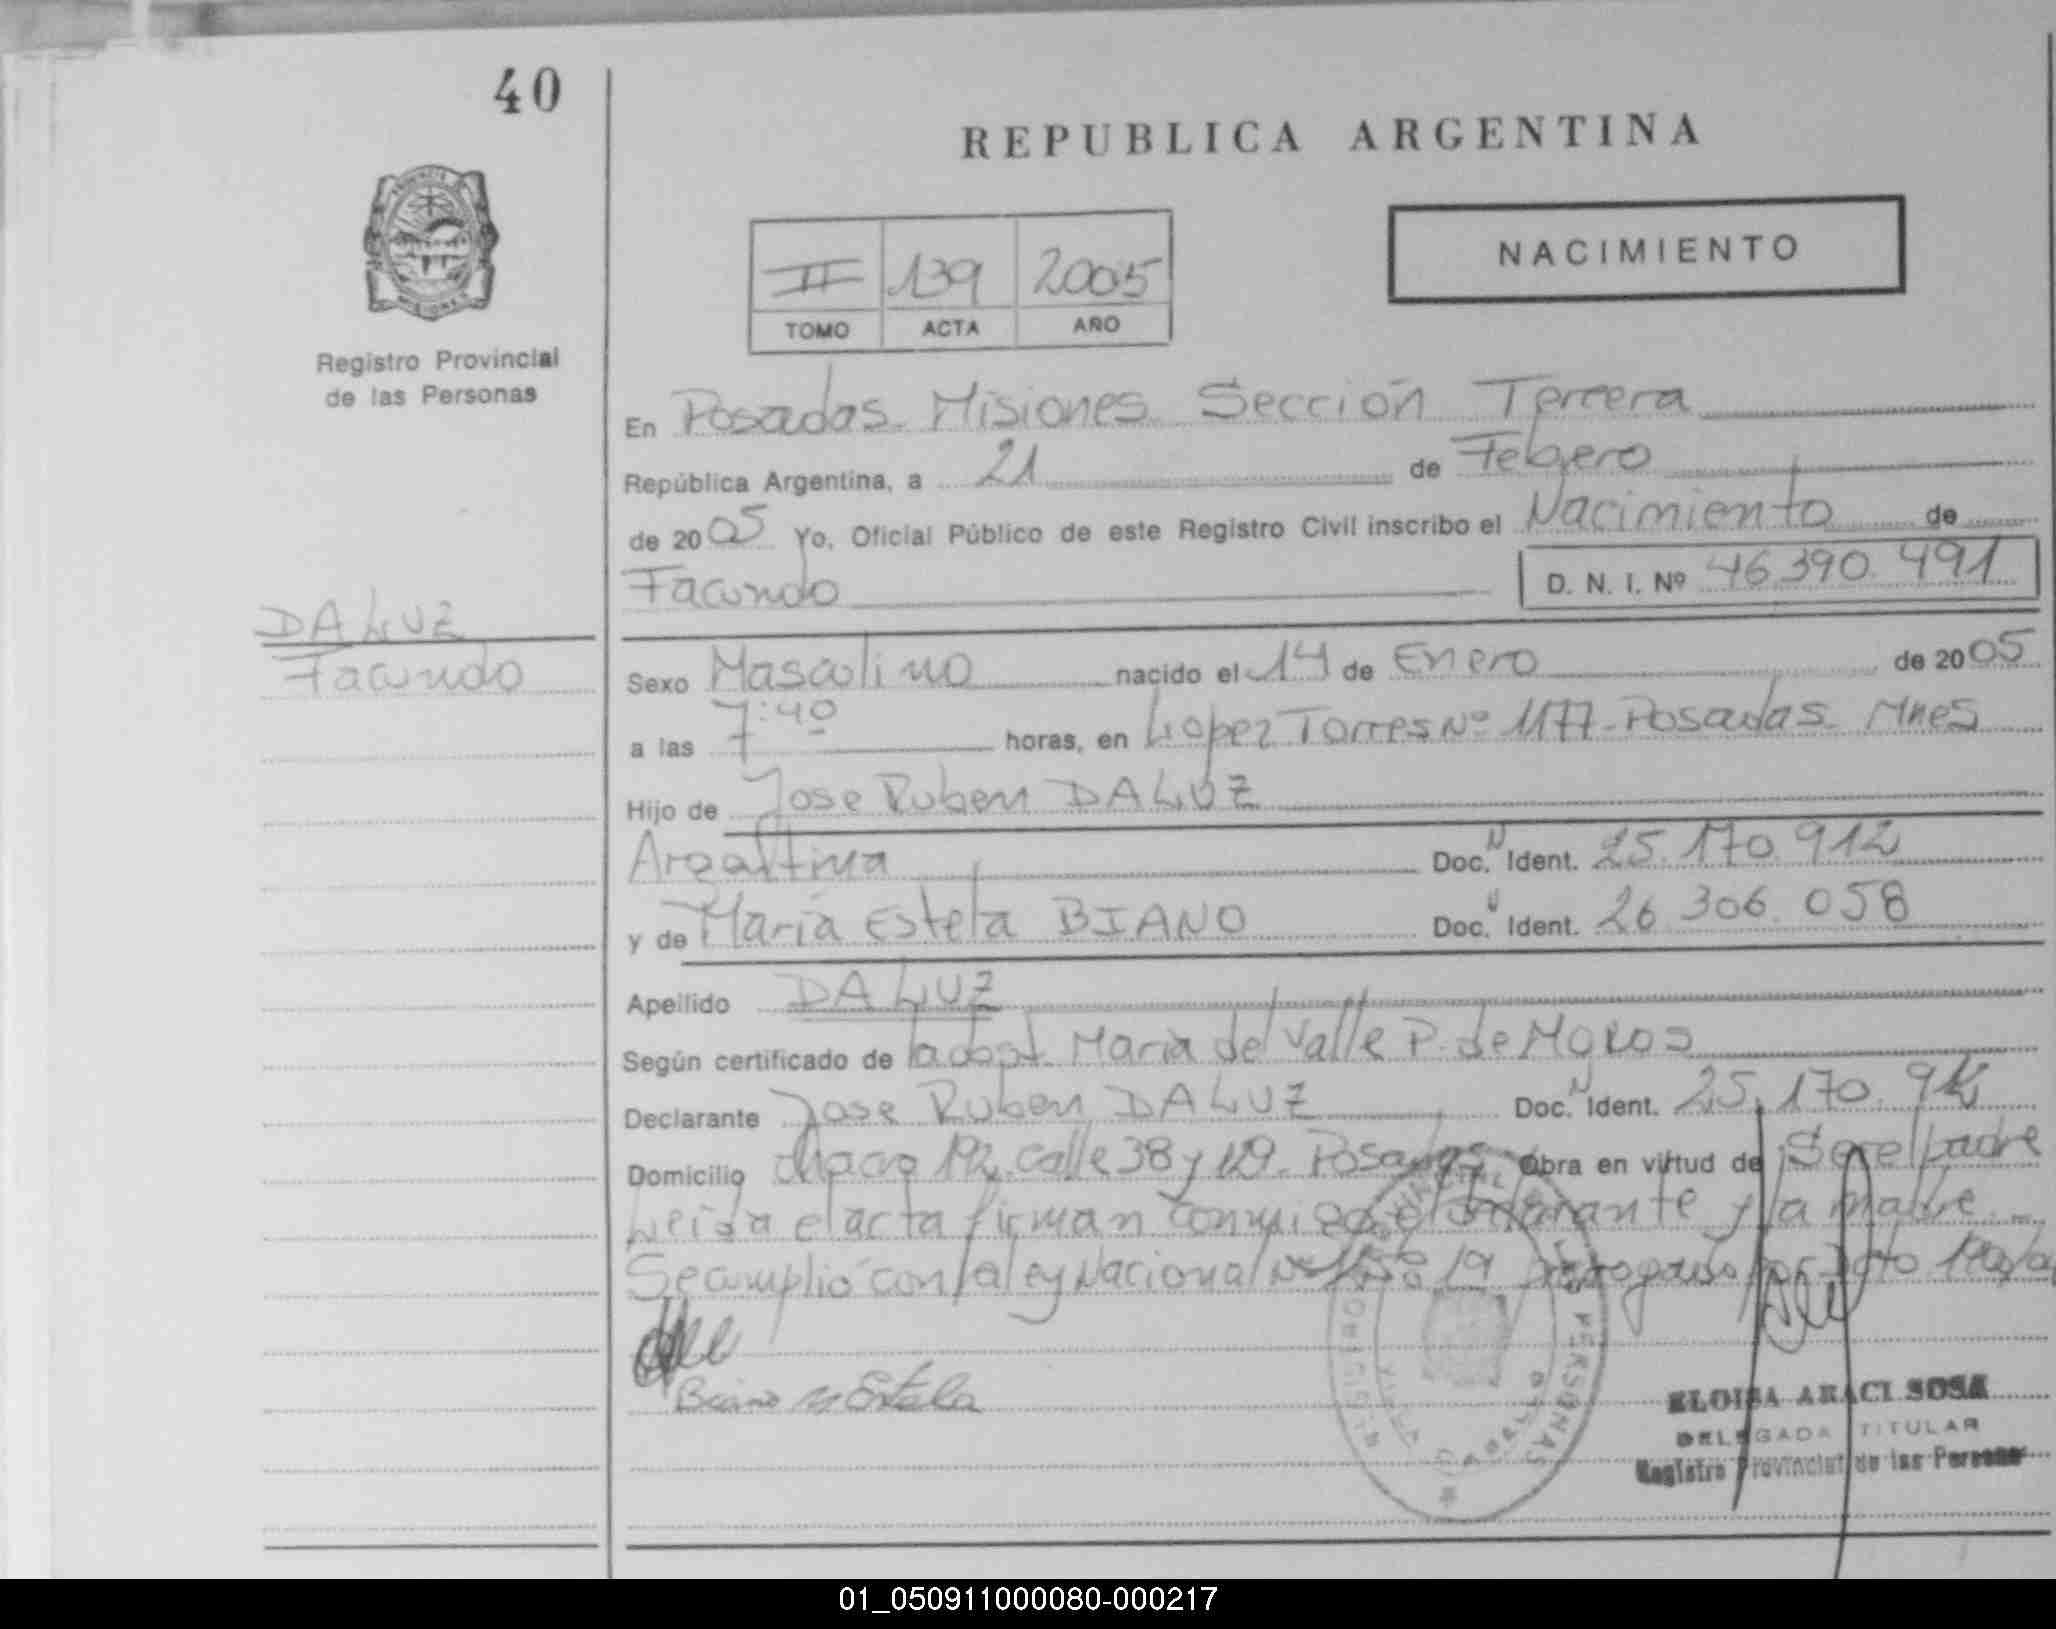 40
REPUBLICA ARGENTINA
PROVINCIA DE
MISIONES
Registro Provincial
de las Personas
II 139 2005
TOMO ACTA AÑO
NACIMIENTO
En Posadas. Misiones. Sección Tercera
República Argentina, a 21 de Febrero
de 2005 Yo, Oficial Público de este Registro Civil inscribo el Nacimiento de
Facundo D. N. I. Nº 46.390.491
DA LUZ
Facundo
Sexo Masculino nacido el 14 de Enero de 2005
a las 7:40 horas, en Lopez Torres Nº 1177 - Posadas - Mnes
Hijo de Jose Ruben DA LUZ
Argentina Doc. N Ident. 25.170.912
y de Maria Estela BIANO Doc. N Ident. 26.306.058
Apellido DA LUZ
Según certificado de la obst. Maria del Valle P. de
Declarante Jose Ruben DA LUZ Doc. N Ident. 25.170.912
Domicilio chacra 192. Calle 38 y 129. Posadas Obra en virtud de Ser el padre
Leida el acta firman conmigo el declarante y la madre.
Se cumplió con la ley Nacional Nº
Biano M Estela
ELOISA ARACI SOSA
DELEGADA TITULAR
Registro Provincial de las Personas
01_050911000080-000217